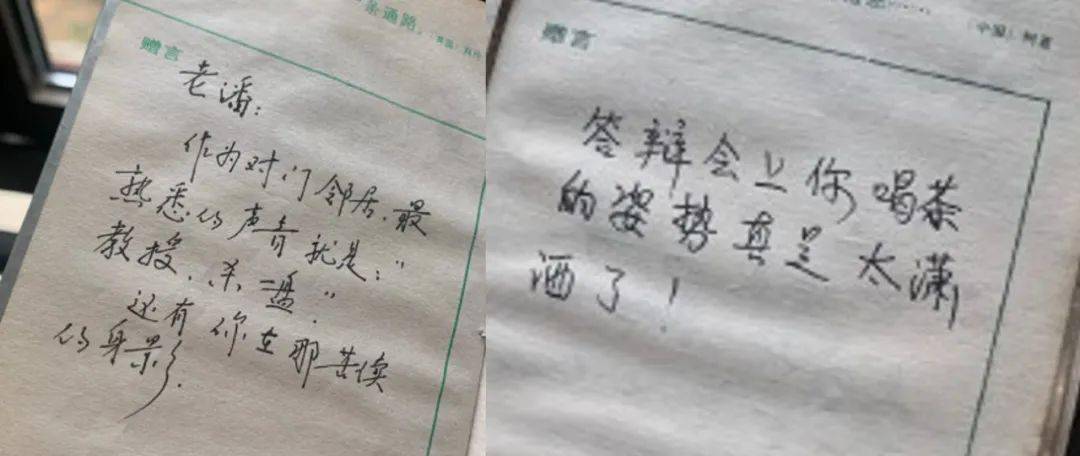 圣通路。
赠言
老潘：
作为对门邻居，最
熟悉的声音就是："
教授，杀一盘"
还有你在那苦读
的身影.
赠言
答辩会上你喝茶
的姿势真是太潇
洒了！